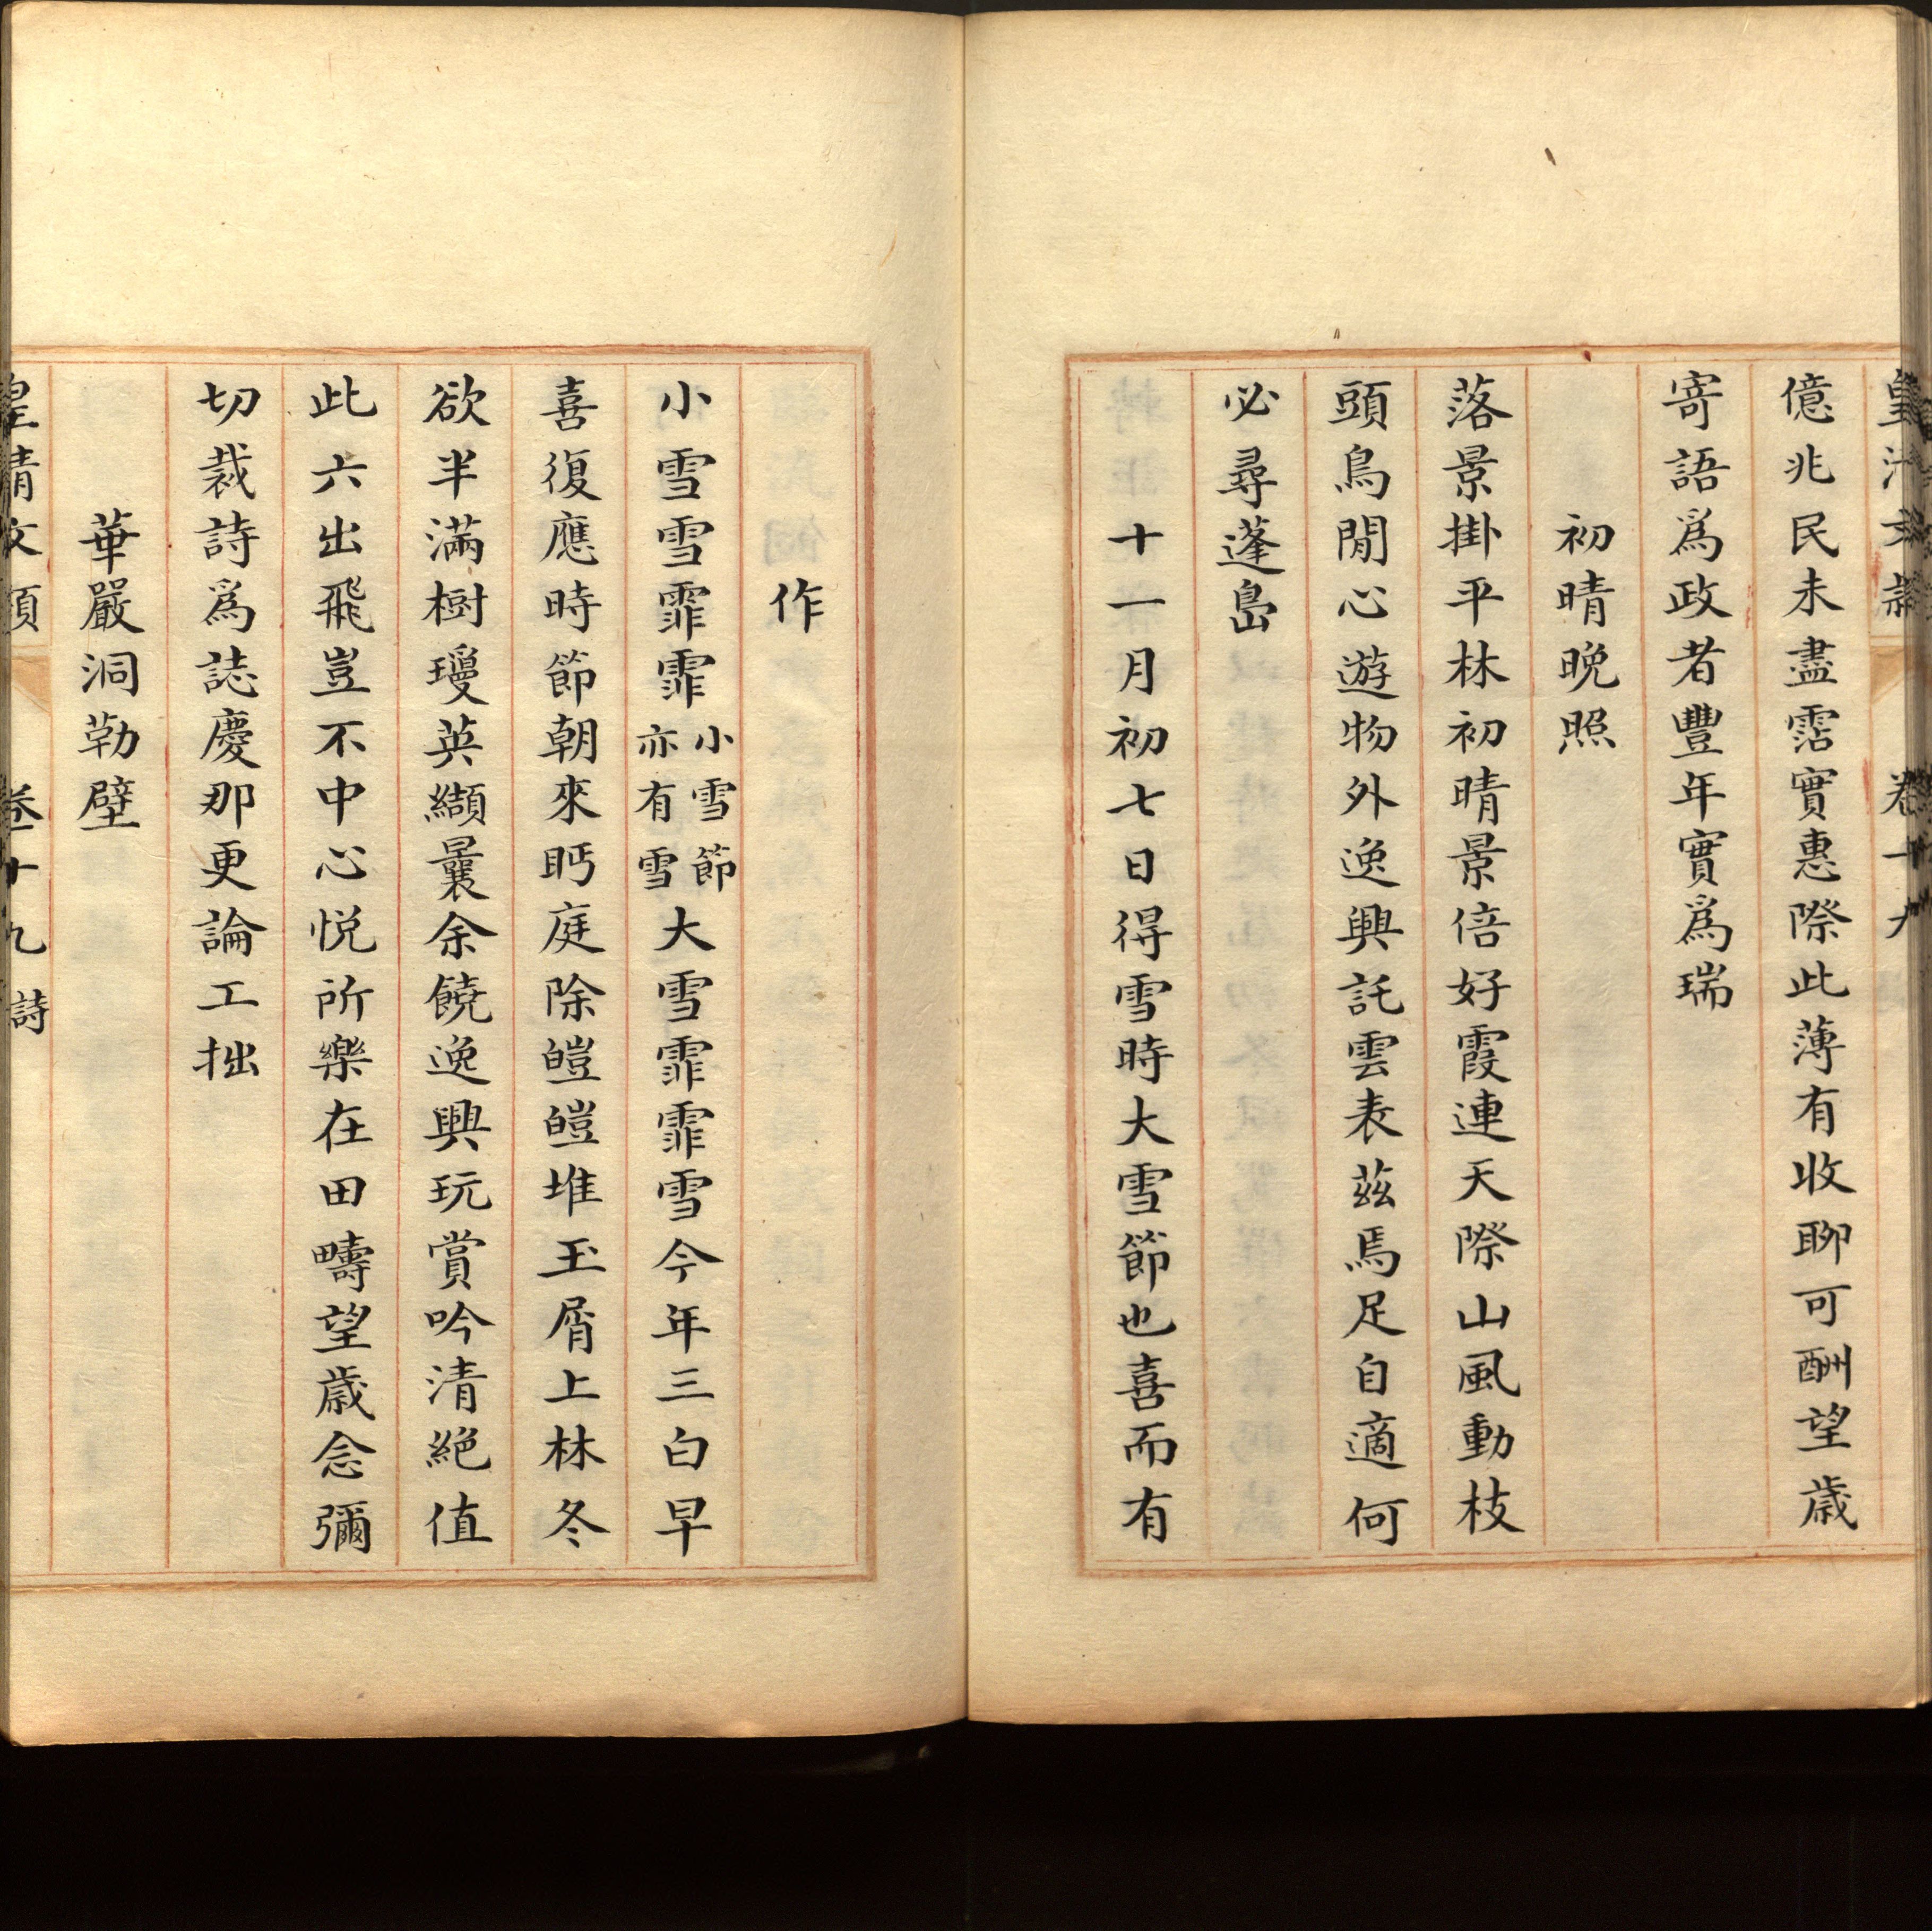 皇清文
卷十九
億兆民未盡霑實惠際此薄有收聊可酬望歳
寄語爲政者豐年實爲瑞
初晴晩照
落景掛平林初晴景倍好霞連天際山風動枝
頭鳥閒心遊物外逸興託雲表茲焉足自適何
必尋蓬島
十一月初七日得雪時大雪節也喜而有
作
小雪雪霏霏小雪節亦有雪大雪霏霏雪今年三白早
喜復應時節朝來眄庭除皚皚堆玉屑上林冬
欲半滿樹瓊英纈曩余饒逸興玩賞吟清絶值
此六出飛豈不中心悦所樂在田疇望歳念彌
切裁詩爲誌慶那更論工拙
華嚴洞勒壁
皇清文頴
卷十九
詩